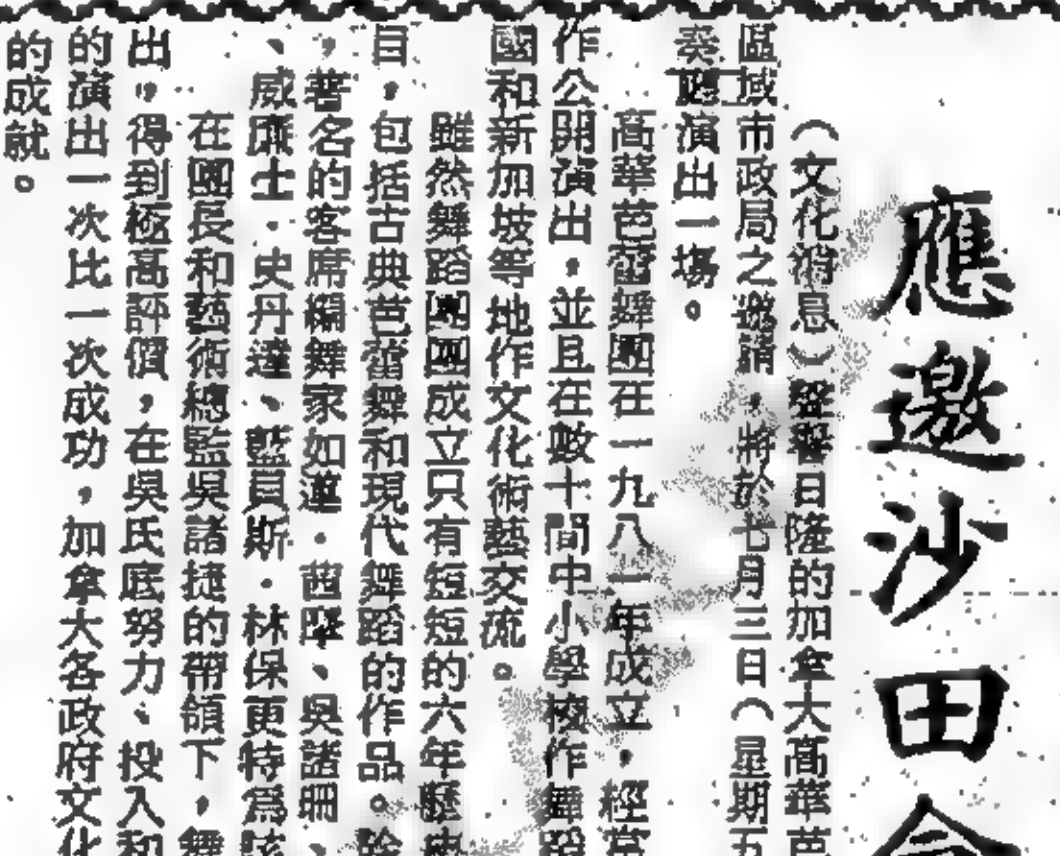 應邀沙田會
（文化消息）聲譽日隆的加拿大高華芭
區域市政局之邀請，將於七月三日（星期五
奏廳演出一場。
高華芭蕾舞團在一九八一年成立，經常
作公開演出，並且在數十間中小學校作舞蹈
國和新加坡等地作文化術藝交流。
雖然舞蹈團團成立只有短短的六年歷史
目，包括古典芭蕾舞和現代舞蹈的作品。除
，著名的客席編舞家如道．茜摩、吳諸珊、
、威廉士．史丹達、藍貝斯．林保更特為該
在團長和藝術總監吳諸捷的帶領下，舞
出，得到極高評價，在吳氏底努力、投入和
的演出一次比一次成功，加拿大各政府文化
的成就。